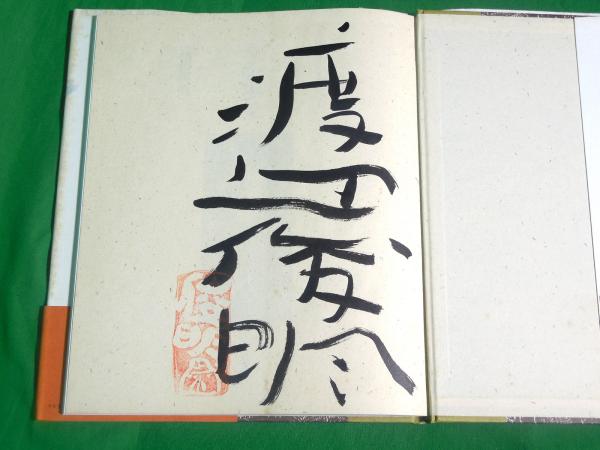 渡辺俊明